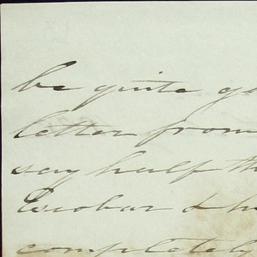 be quite g
letter from
say half th
Escobar & h
completely